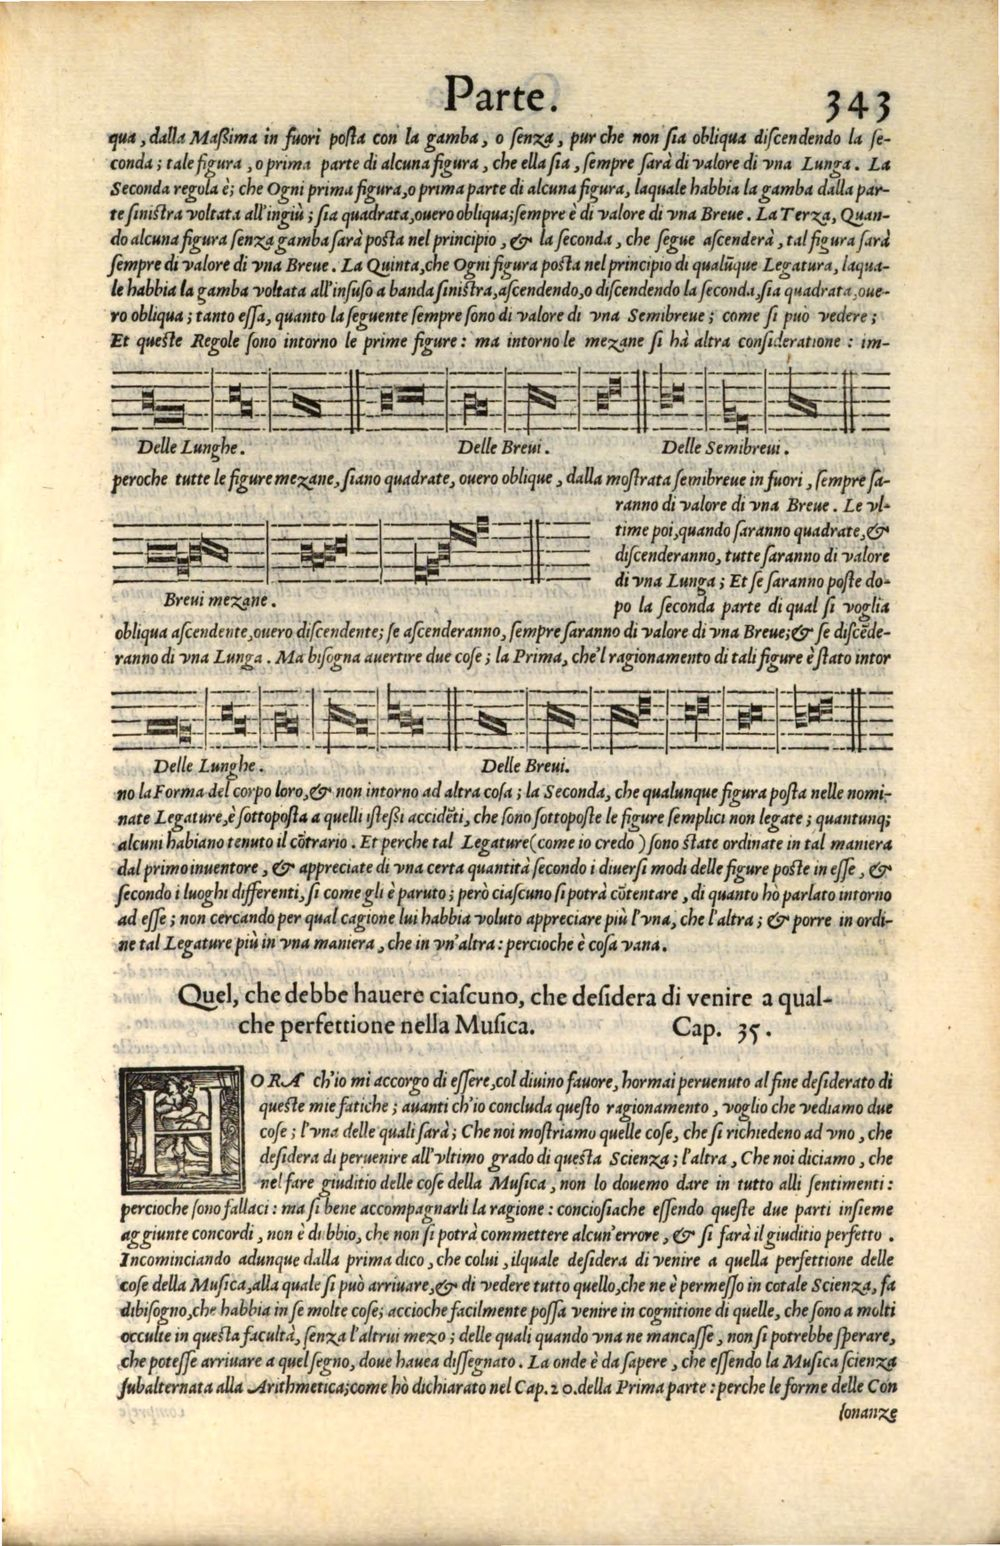 Parte. 343
qua, dalla Maßima in fuori poſta con la gamba, o ſenza, pur che non ſia obliqua diſcendendo la ſe-
conda; tale figura, o prima parte di alcuna figura, che ella ſia, ſempre ſarà di valore di vna Lunga. La
Seconda regola è; che Ogni prima figura, o prima parte di alcuna figura, laquale habbia la gamba dalla par-
te ſiniſtra voltata all'ingiù; ſia quadrata, ouero obliqua; ſempre è di valore di vna Breue. La Terza, Quan-
do alcuna figura ſenza gamba ſarà poſta nel principio, & la ſeconda, che ſegue aſcenderà, tal figura ſarà
ſempre di valore di vna Breue. La Quinta, che Ogni figura poſta nel principio di qualũque Legatura, laqua-
le habbia la gamba voltata all'inſuſo a banda ſiniſtra, aſcendendo, o diſcendendo la ſeconda, ſia quadrata, oue-
ro obliqua; tanto eſſa, quanto la ſeguente ſempre ſono di valore di vna Semibreue; come ſi può vedere;
Et queſte Regole ſono intorno le prime figure: ma intorno le mezane ſi hà altra conſideratione: im-
Delle Lunghe. Delle Breui. Delle Semibreui.
peroche tutte le figure mezane, ſiano quadrate, ouero oblique, dalla moſtrata ſemibreue in fuori, ſempre ſa-
ranno di valore di vna Breue. Le vl-
time poi, quando ſaranno quadrate, &
diſcenderanno, tutte ſaranno di valore
di vna Lunga; Et ſe ſaranno poſte do-
Breui mezane.
po la ſeconda parte di qual ſi voglia
obliqua aſcendente, ouero diſcendente; ſe aſcenderanno, ſempre ſaranno di valore di vna Breue; & ſe diſcẽde-
ranno di vna Lunga. Ma biſogna auertire due coſe; la Prima, che'l ragionamento di tali figure è ſtato intor
Delle Lunghe. Delle Breui.
no la Forma del corpo loro, & non intorno ad altra coſa; la Seconda, che qualunque figura poſta nelle nomi-
nate Legature, è ſottopoſta a quelli iſteſſi accidẽti, che ſono ſottopoſte le figure ſemplici non legate; quantunq;
alcuni habiano tenuto il cõtrario. Et perche tal Legature (come io credo) ſono ſtate ordinate in tal maniera
dal primo inuentore, & appreciate di vna certa quantità ſecondo i diuerſi modi delle figure poſte in eſſe, &
ſecondo i luoghi differenti, ſi come gli è paruto; però ciaſcuno ſi potrà cõtentare, di quanto hò parlato intorno
ad eſſe; non cercando per qual cagione lui habbia voluto appreciare più l'vna, che l'altra; & porre in ordi-
ne tal Legature più in vna maniera, che in vn'altra: percioche è coſa vana.
Quel, che debbe hauere ciaſcuno, che deſidera di venire a qual-
che perfettione nella Muſica. Cap. 35.
HORA ch'io mi accorgo di eſſere, col diuino fauore, hormai peruenuto al fine deſiderato di
queſte mie fatiche; auanti ch'io concluda queſto ragionamento, voglio che vediamo due
coſe; l'vna delle quali ſarà; Che noi moſtriamo quelle coſe, che ſi richiedeno ad vno, che
deſidera di peruenire all'vltimo grado di queſta Scienza; l'altra, Che noi diciamo, che
nel fare giuditio delle coſe della Muſica, non lo douemo dare in tutto alli ſentimenti:
percioche ſono fallaci: ma ſi bene accompagnarli la ragione: concioſiache eſſendo queſte due parti inſieme
aggiunte concordi, non è dubbio, che non ſi potrà commettere alcun'errore, & ſi farà il giuditio perfetto.
Incominciando adunque dalla prima dico, che colui, ilquale deſidera di venire a quella perfettione delle
coſe della Muſica, alla quale ſi può arriuare, & di vedere tutto quello, che ne è permeſſo in cotale Scienza, fa
dibiſogno, che habbia in ſe molte coſe; accioche facilmente poſſa venire in cognitione di quelle, che ſono a molti
occulte in queſta facultà, ſenza l'altrui mezo; delle quali quando vna ne mancaſſe, non ſi potrebbe ſperare,
che poteſſe arriuare a quel ſegno, doue hauea diſſegnato. La onde è da ſapere, che eſſendo la Muſica ſcienza
ſubalternata alla Arithmetica; come hò dichiarato nel Cap. 20. della Prima parte: perche le forme delle Con
ſonanze